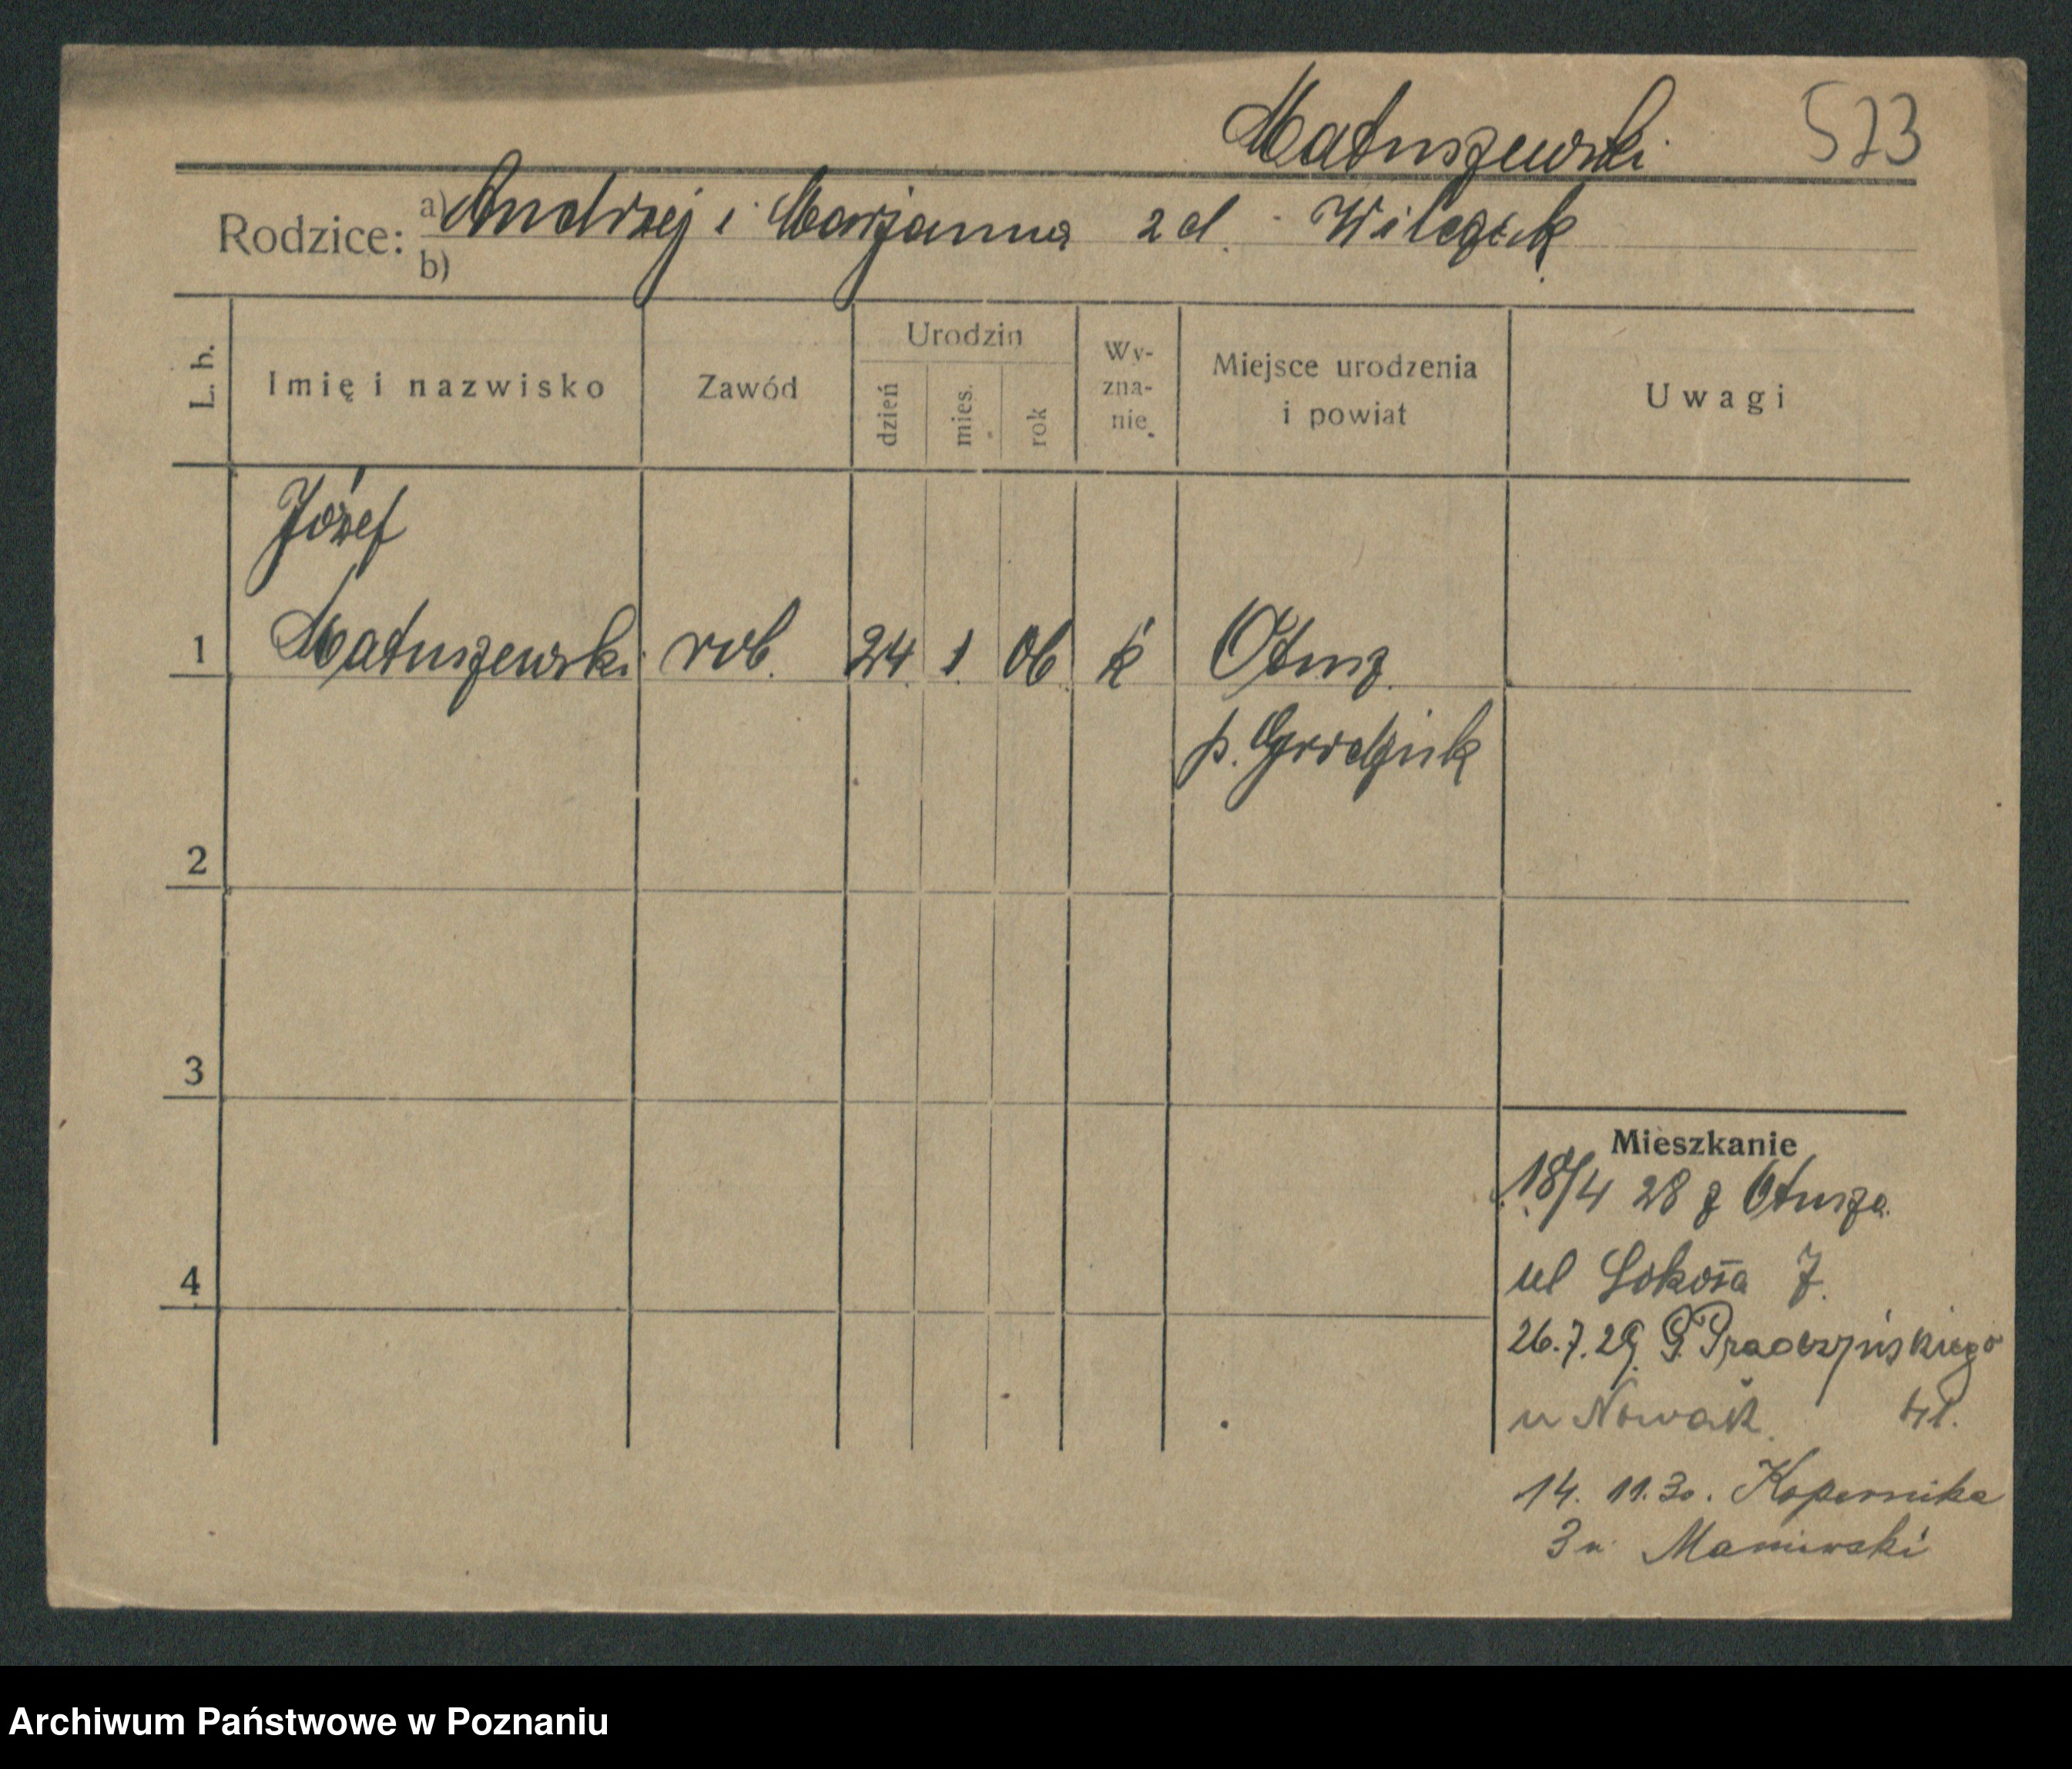 Matuszewski 573
Rodzice: a) Andrzej i Marjanna z d. Wilczek
b)
L. b. Imię i nazwisko Zawód Urodzin dzień mies. rok Wy-zna-nie Miejsce urodzenia i powiat Uwagi
Józef
1 Matuszewski rob. 24 1 06 k Otusz
p. Grodzisk
2
3
Mieszkanie
18/4 28 z Otusza
4 ul Sokoła 7.
26.7.29 G. Prądzyńskiego
u Nowak
14. 11. 30. Kopernika
3 u
Archiwum Państwowe w Poznaniu